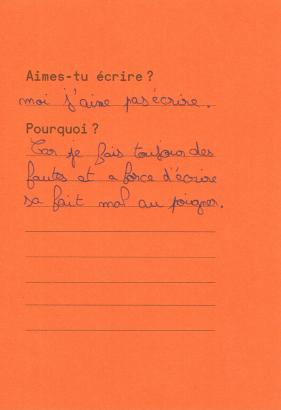 Aimes-tu écrire ?
moi j'aime pas écrire.
Pourquoi ?
Car je fais toujours des
fautes et a force d'écrire
sa fait mal au poigner.